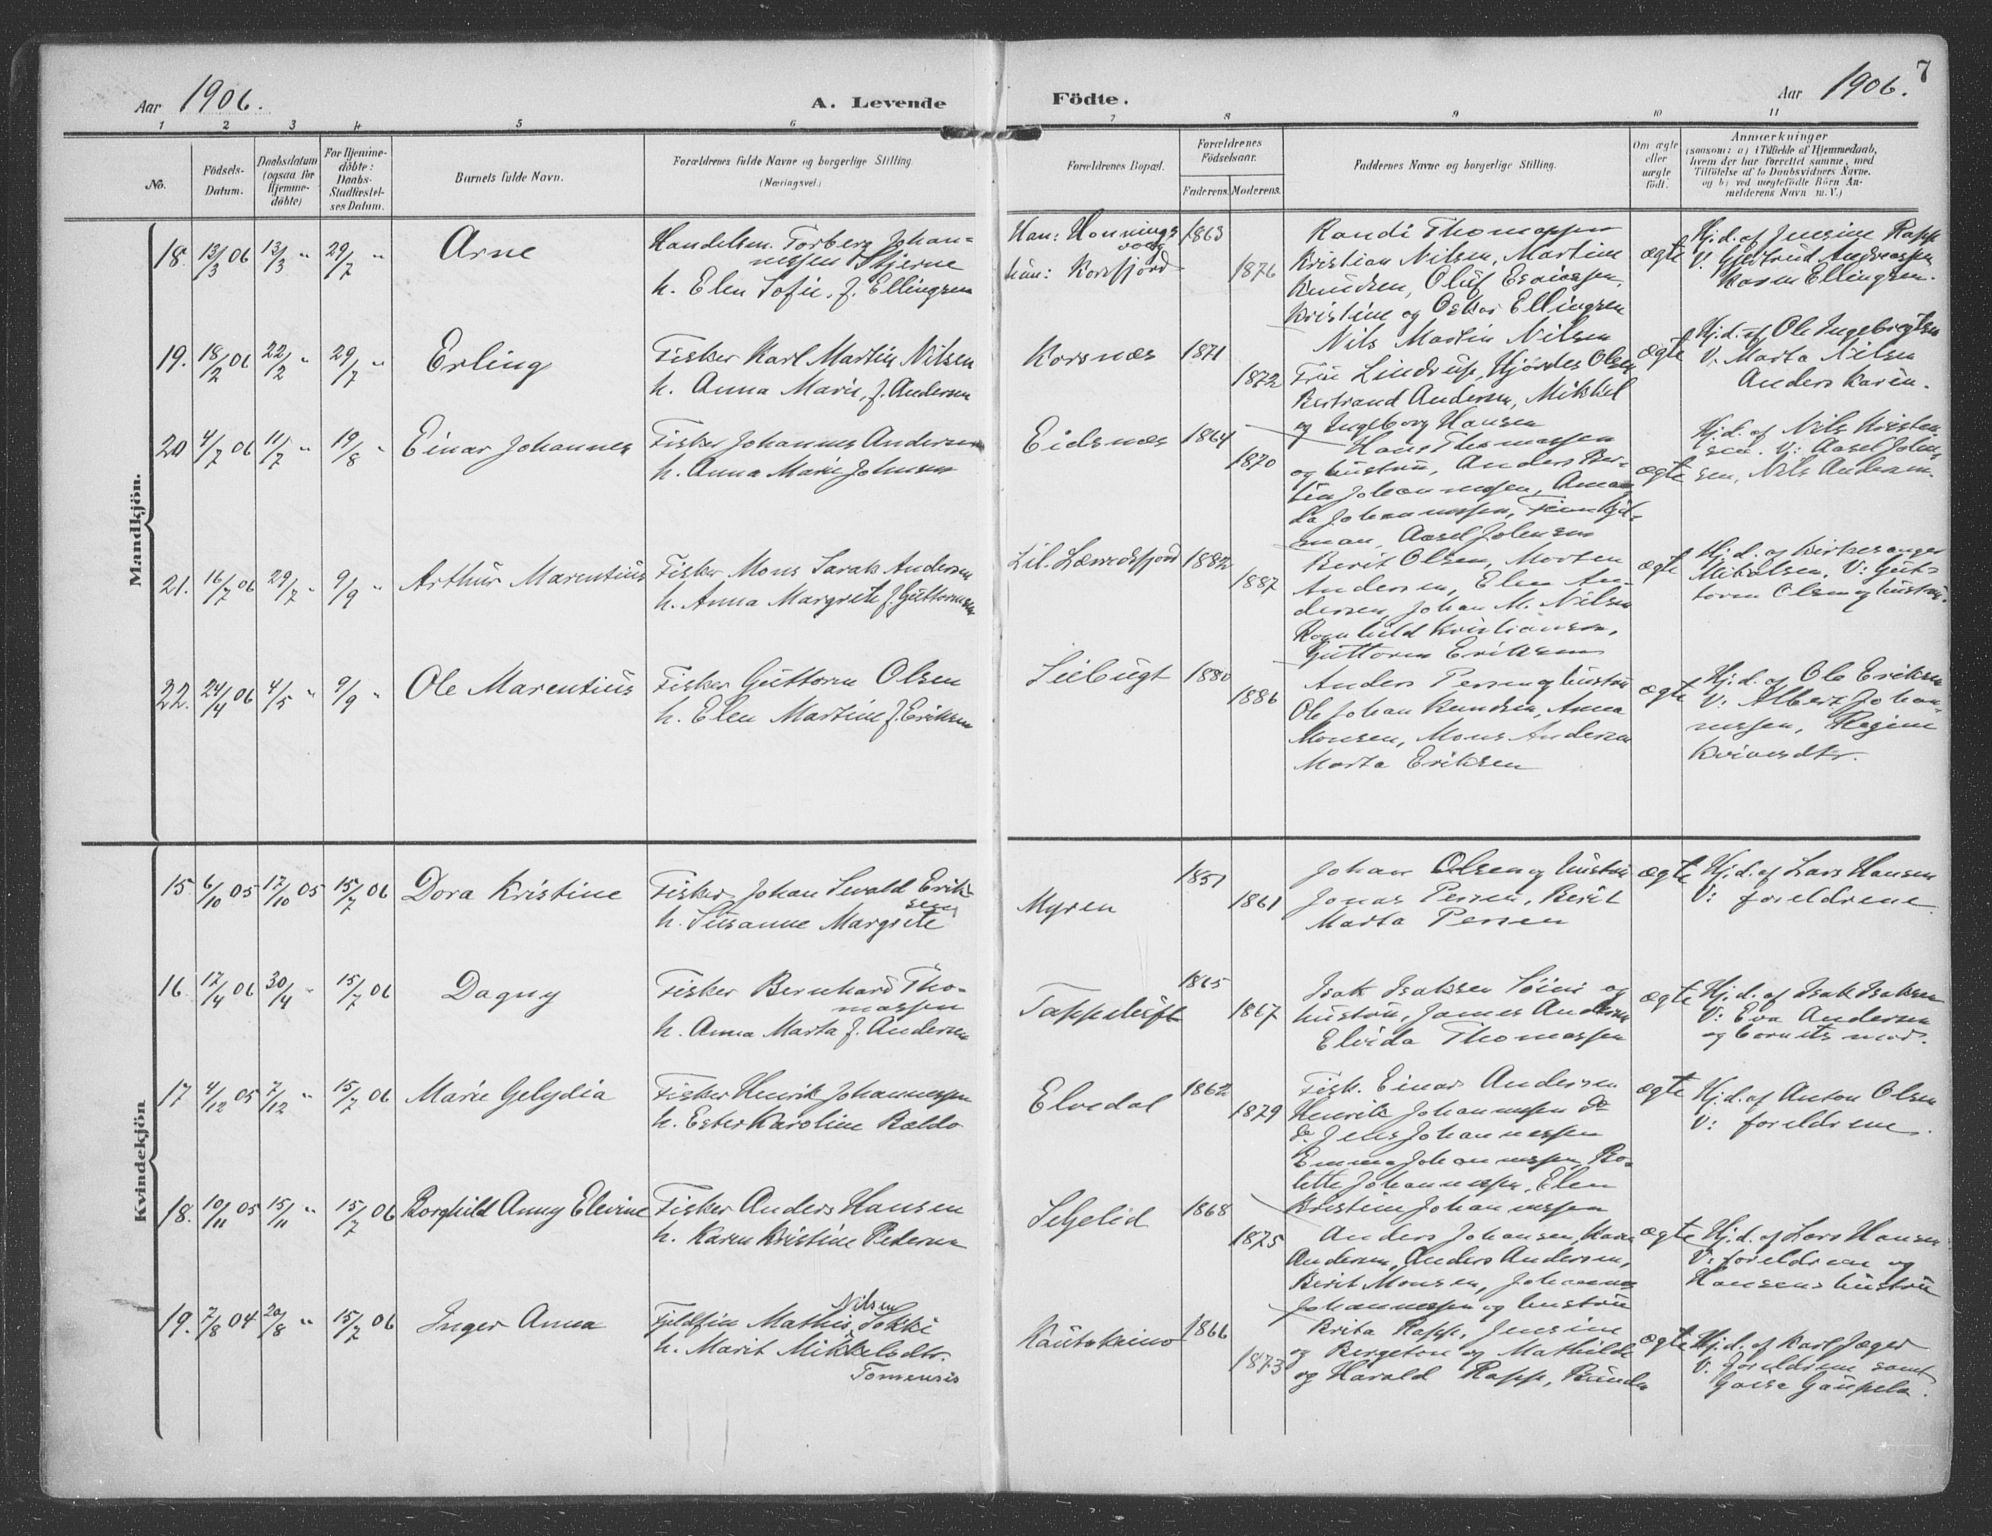 Aar 1906.
A. Levende Födte.
Aar 1906.
7
1 2 3 4 5 6 7 8 9 10 11
No.
Födsels-Datum.
Daabsdatum (ogsaa for Hjemme-döbte)
For Hjemme-döbte: Daabs-Stadfæstel-ses Datum.
Barnets fulde Navn.
Forældrenes fulde Navne og borgerlige Stilling.
(Næringsvei.)
Forældrenes Bopæl.
Forældrenes Födselsaar.
Faderens. Moderens.
Faddernes Navne og borgerlige Stilling.
Om ægte eller uægte födt.
Anmærkninger
(saasom: a) i Tilfælde af Hjemmedaab,
hvem der har forrettet samme, med
Tilföielse af to Daabsvidners Navne.
og b) ved uægtefödte Börn An-
melderens Navn m. V.)
Mandkjön.
18. 13/3 06 13/3 " 29/7 " Arne
Handelsm. Torberg Johan-
nessen Stjerne
h. Elen Sofie, f. Ellingsen
Han: Honnings
vaag
hun: Korsfjord
1863
1876
Randi Thomassen
Kristian Nilsen, Martine
Knudsen, Oluf Esaiassen,
Kristine og Oskar Ellingsen
ægte
Hj.d. af Jensine Rapp
V. Gjertrud Andreassen
Karen Ellingsen.
19. 18/2 06 22/2 " 29/7 " Erling
Fisker Karl Martin Nilsen
h. Anna Marie, f. Andersen
Korsnæs
1871
1872
Nils Martin Nilsen
Fru Lindrup, Hjørdes Olsen
Bertrand Andersen, Mikkel
og Ingeborg Hansen
ægte
Hj.d. af Ole Ingebrigtsen
V. Marta Nilsen
Anders Karin.
20 4/7 06 11/7 " 19/8 " Einar Johannes
Fisker Johannes Andersen
h. Anna Marie Johnsen
Eidsnæs
1864
1870
Hans Thomassen
og hustru, Anders Ber-
tin Johannessen, Aman
da Johannessen,
Aasel Johnsen
ægte
Hj.d. af Nils Kristen
sen. V: Aasel John
sen, Nils Andersen.
21. 16/7 06 29/7 " 9/9 " Arthur Marentius
Fisker Mons Sarak Andersen
h. Anna Margrete f. Guttormsen
Lil. Lærredsfjord
1882
1887
Berit Olsen, Morten
Andersen, Elen An-
dersen, Johan M. Nilsen
Ragnhild Kristiansen,
Guttorm Eriksen
ægte
Hj. d. af Kirkesanger
Mikalsen. V: Gut-
torm Olsen og hustru.
22. 24/4 06 4/5 " 9/9 " Ole Marentius
Fisker Guttorm Olsen
h. Elen Martine f. Eriksen
Leibugt
1880
1886
Anders Persen og hustru
Ole Johan Knudsen, Anna
Monsen, Mons Andersen
Marta Eriksen
ægte
Hj.d. af Ole Eriksen
V: Albert Johan-
nessen, Regine
Kvivesdtr.
Kvindekjön
15. 6/10 05 17/10 05 15/7 06 Dora Kristine
Fisker Johan Sevald Erik
sen
h. Susanne Margrete
Myren
1851
1861
Johan Olsen og hustru
Jonas Persen, Berit
Marta Persen
ægte
Hj.d. af Lars Hansen
V: foreldrene
16. 17/4 06 30/4 " 15/7 06 Dagny
Fisker Bernhard Tho-
massen
h. Anna Marta f. Andersen
Tappeluft
1865
1867
Isak Isaksen Soini og
hustru, James Andersen
Elvida Thomassen
ægte
Hj. d. af Isak Isaksen
V: Eva Andersen
og barnets mor.
17 4/12 05 7/12 " 15/7 06 Marie Gelydia
Fisker Henrik Johannessen
h. Ester Karoline Baldo
Elvedal
1862
1879
Fisk. Einar Andersen
Henrik Johannessen do
do Jens Johannessen
Emma Johannessen, Bo-
lette Johannessen, Elen
Kristine Johannessen
ægte
Hj.d. af Anton Olsen
V: foreldrene.
18. 10/11 05 15/11 " 15/7 06 Borghild Anny Elevine
Fisker Anders Hansen
h. Karen Kristine Pedersen
Seljelid
1868
1875
Anders Johansen, Karen
Andersen, Anders Andersen,
Berit Monsen, Johannes
Johannessen og hustru
ægte
Hj.d. af Lars Hansen
V: foreldrene og
Hansens hustru
19. 7/8 04 20/8 " 15/7 06 Inger Anna
Nilsen
Fjeldfin Mathis Sokki
h. Marit Mikkelsdtr.
Tornensis
Kautokeino
1866
1873
Brita Rapp, Jensine
og Bergeton og Mathilde
og Harald Rapp,
ægte
Hj.d. af Karl Jæger
V. foreldrene samt
Gaupela.